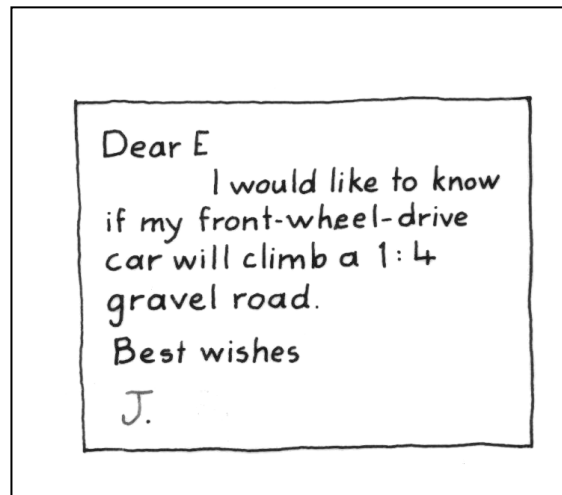 Dear E
I would like to know
if my front-wheel-drive
car will climb a 1:4
gravel road.
Best wishes
J.